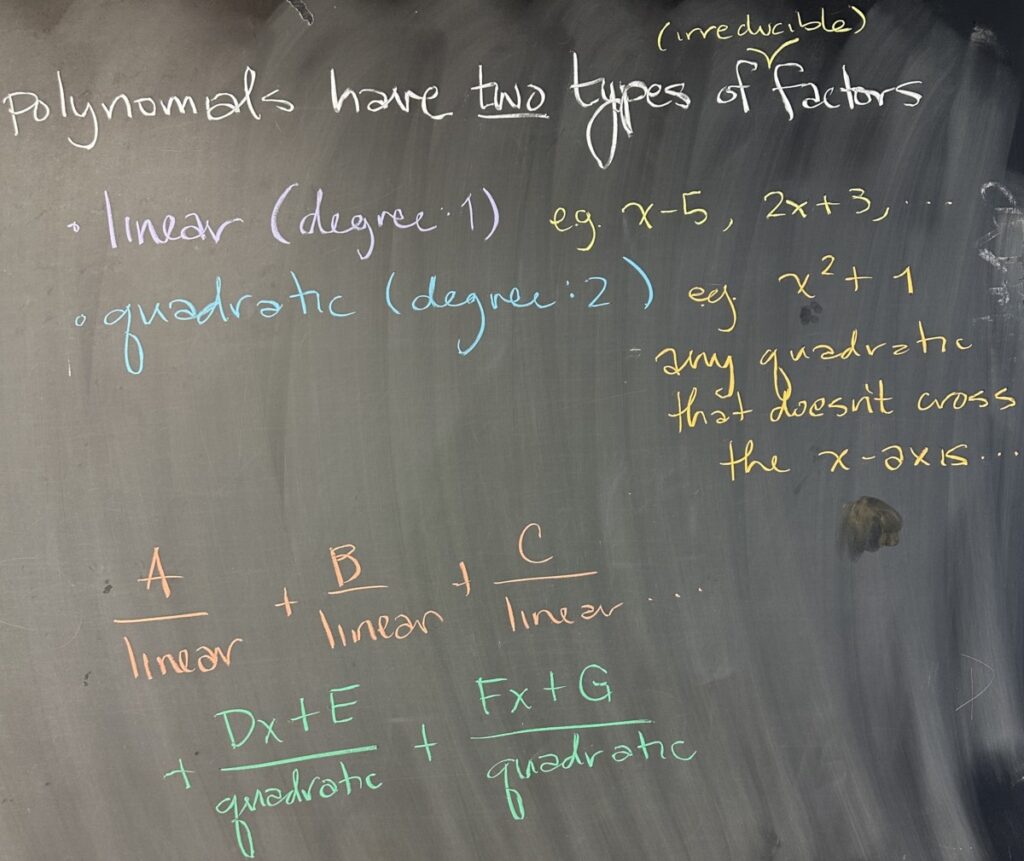 (irreducible)
Polynomials have two types of factors
• linear (degree:1) eg. x-5, 2x+3, ...
• quadratic (degree:2) eg. x² + 1
any quadratic
that doesn't cross
the x-axis...
A/linear + B/linear + C/linear ...
+ Dx+E/quadratic + Fx+G/quadratic